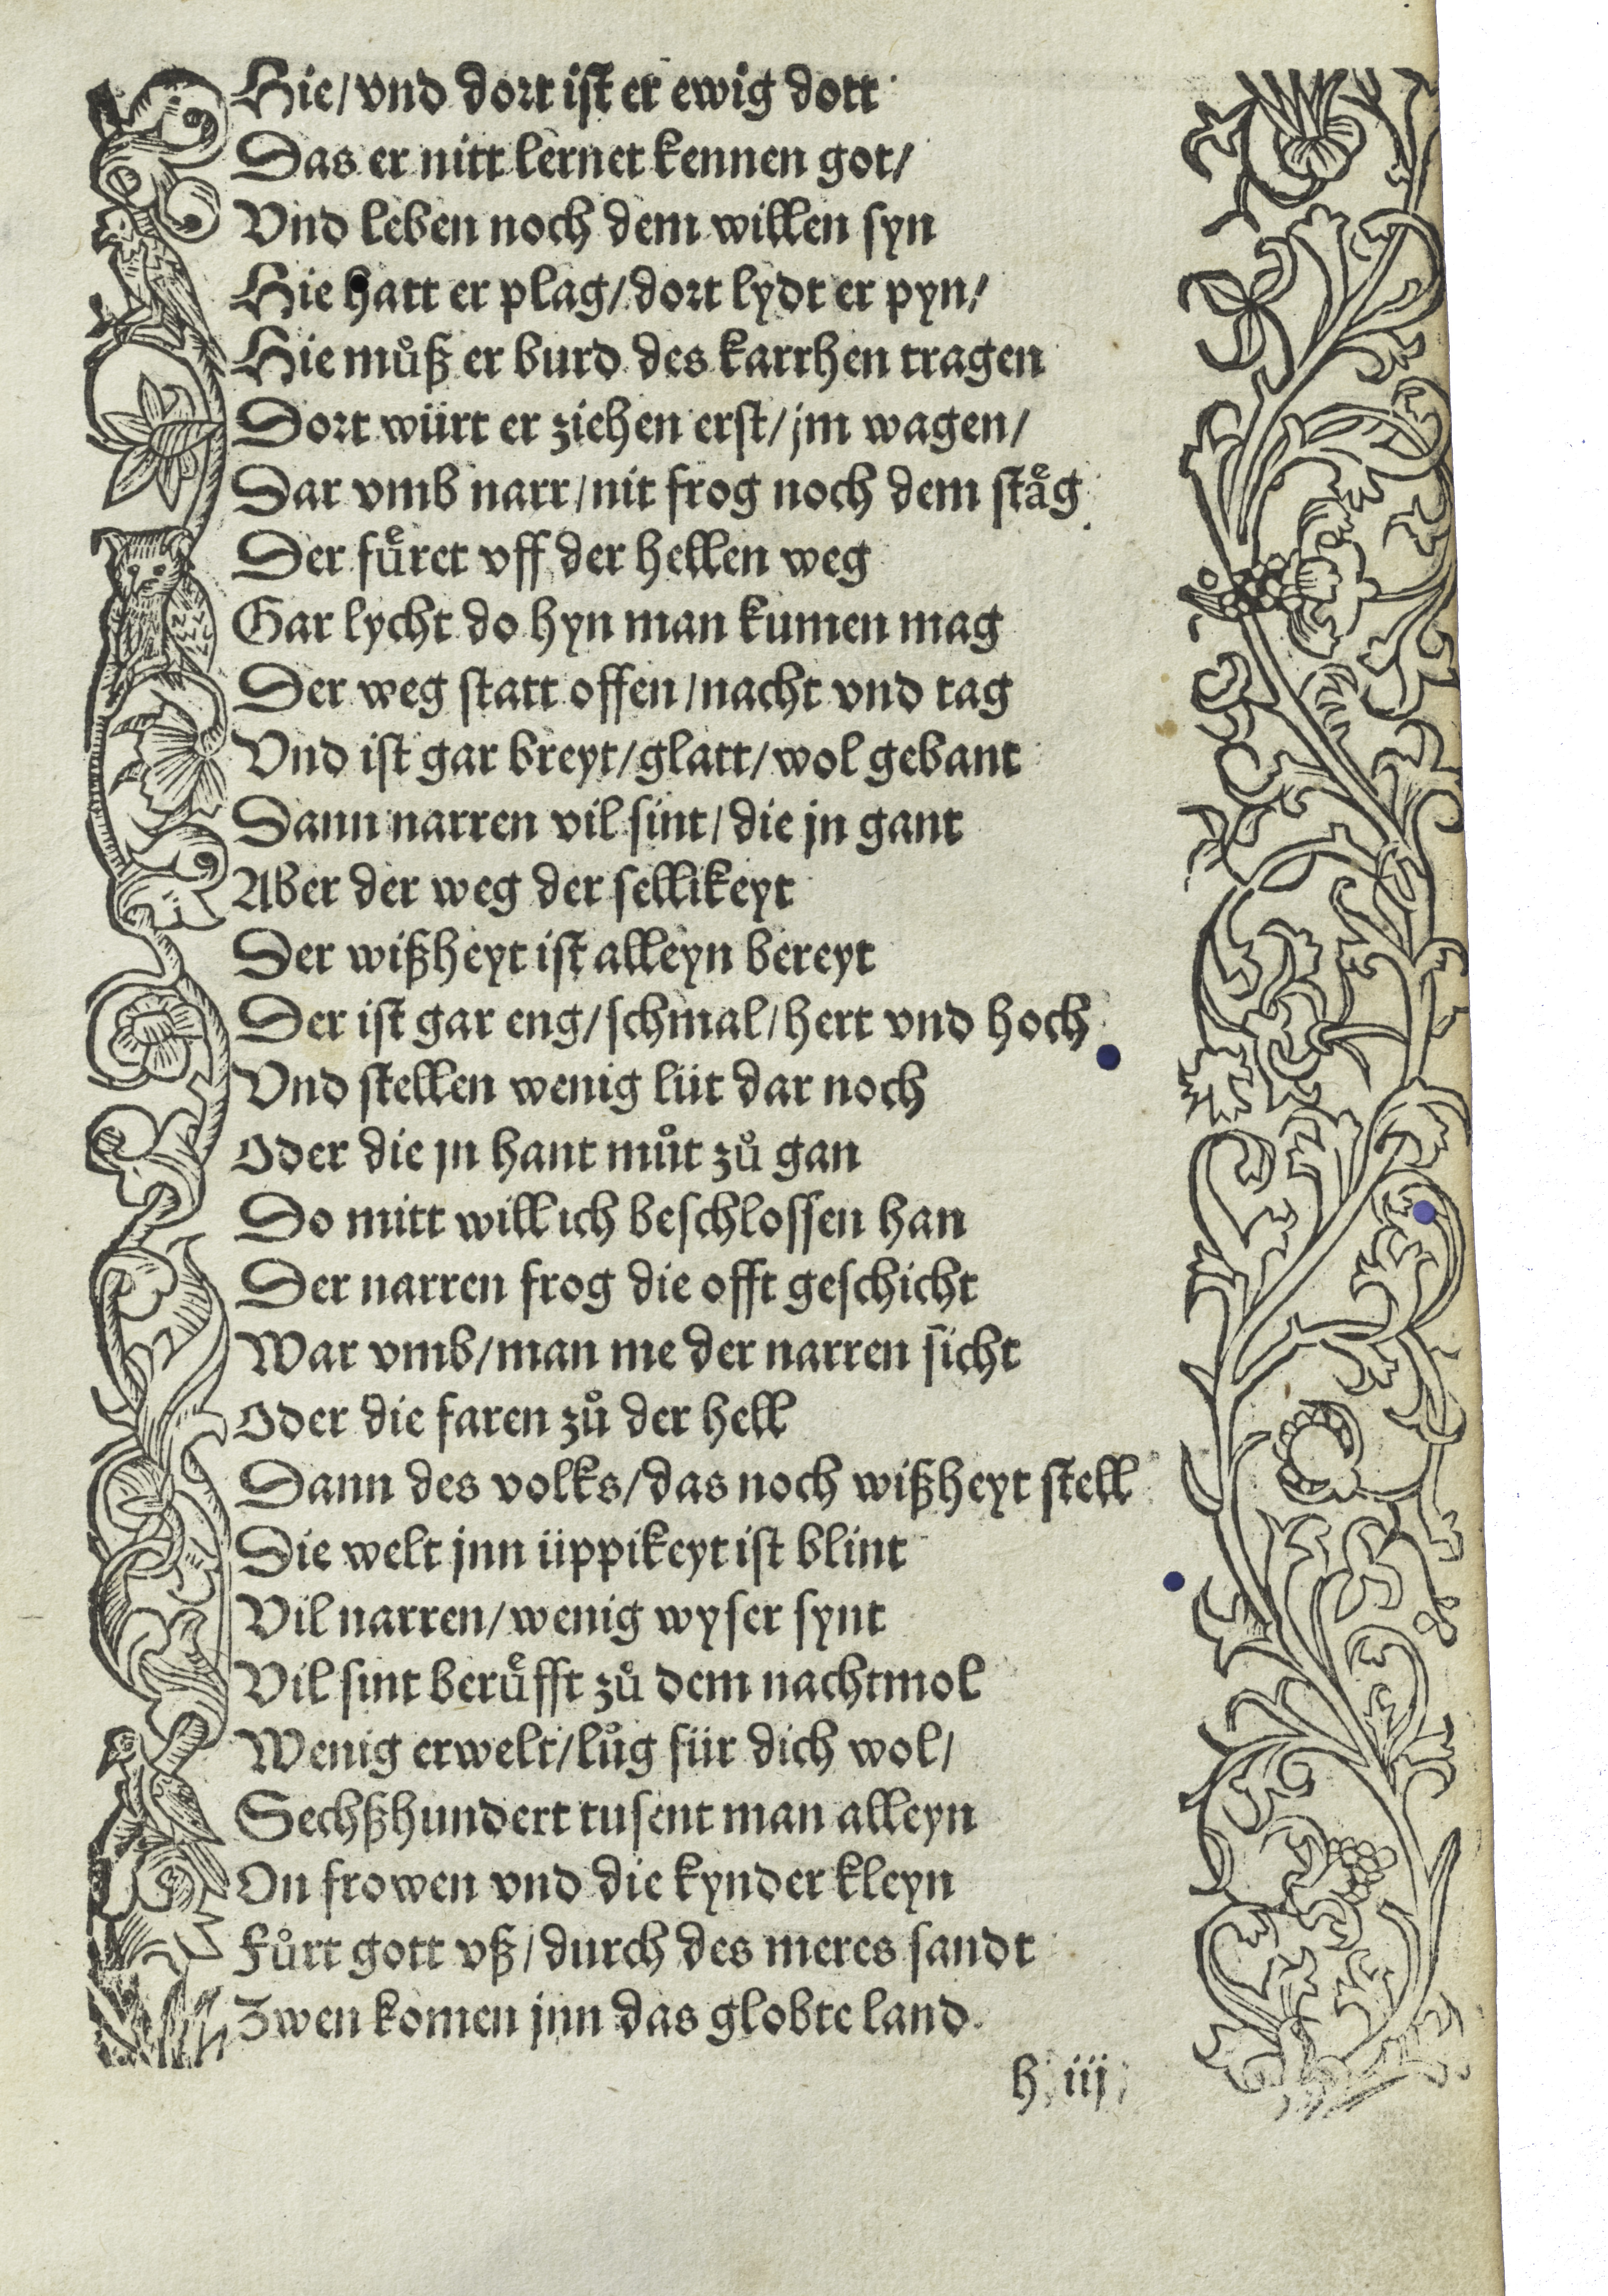 Hie/vnd dort ist er ewig dott
Das er nitt lernet kennen got/
Vnd leben noch dem willen syn
Hie hatt er plag/dort lydt er pyn/
Hie muͦß er burd des karrhen tragen
Dort würt er ziehen erst/jm wagen/
Dar vmb narr/nit frog noch dem staͤg
Der fuͤret vff der hellen weg
Gar lycht do hyn man kumen mag
Der weg statt offen/nacht vnd tag
Vnd ist gar breyt/glatt/wol gebant
Dann narren vil sint/die jn gant
Aber der weg der sellikeyt
Der wißheyt ist alleyn bereyt
Der ist gar eng/schmal/hert vnd hoch
Vnd stellen wenig lüt dar noch
Oder die jn hant muͦt zuͦ gan
Do mitt will ich beschlossen han
Der narren frog die offt geschicht
War vmb/man me der narren sicht
Oder die faren zuͦ der hell
Dann des volks/das noch wißheyt stell
Die welt jnn üppikeyt ist blint
Vil narren/wenig wyser synt
Vil sint beruͤfft zuͦ dem nachtmol
Wenig erwelt/luͦg für dich wol/
Sechßhundert tusent man alleyn
On frowen vnd die kynder kleyn
Fuͦrt gott vß/durch des meres sandt
Zwen komen jnn das globte land.
h iij